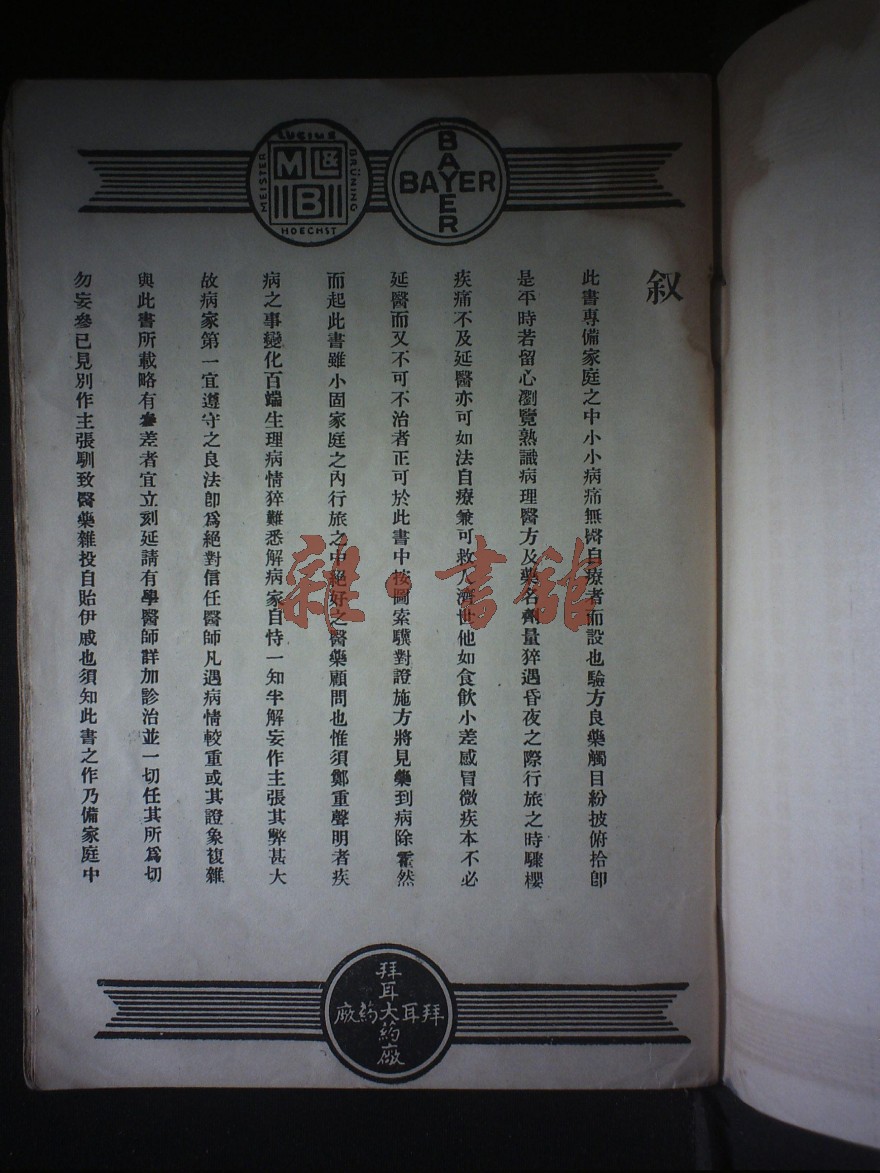 LUCIUS
MEISTER
BRÜNING
ML&
B
HOECHST
BAYER
BAYER
叙
此書專備家庭之中小小病痛無醫自療者而設也驗方良藥觸目紛披俯拾即
是平時若留心瀏覽熟識病理醫方及藥名劑量猝遇昏夜之際行旅之時驟櫻
疾痛不及延醫亦可如法自療兼可救人濟世他如食飲小差感冒微疾本不必
延醫而又不可不治者正可於此書中按圖索驥對證施方將見藥到病除霍然
而起此書雖小固家庭之內行旅之中絕好之醫藥顧問也惟須鄭重聲明者疾
病之事變化百端生理病情猝難悉解病家自恃一知半解妄作主張其弊甚大
故病家第一宜遵守之良法卽爲絕對信任醫師凡遇病情較重或其證象複雜
與此書所載略有參差者宜立刻延請有學醫師詳加診治並一切任其所爲切
勿妄參已見別作主張馴致醫藥雜投自貽伊戚也須知此書之作乃備家庭中
雜·書館
拜耳大葯廠
拜耳大葯廠